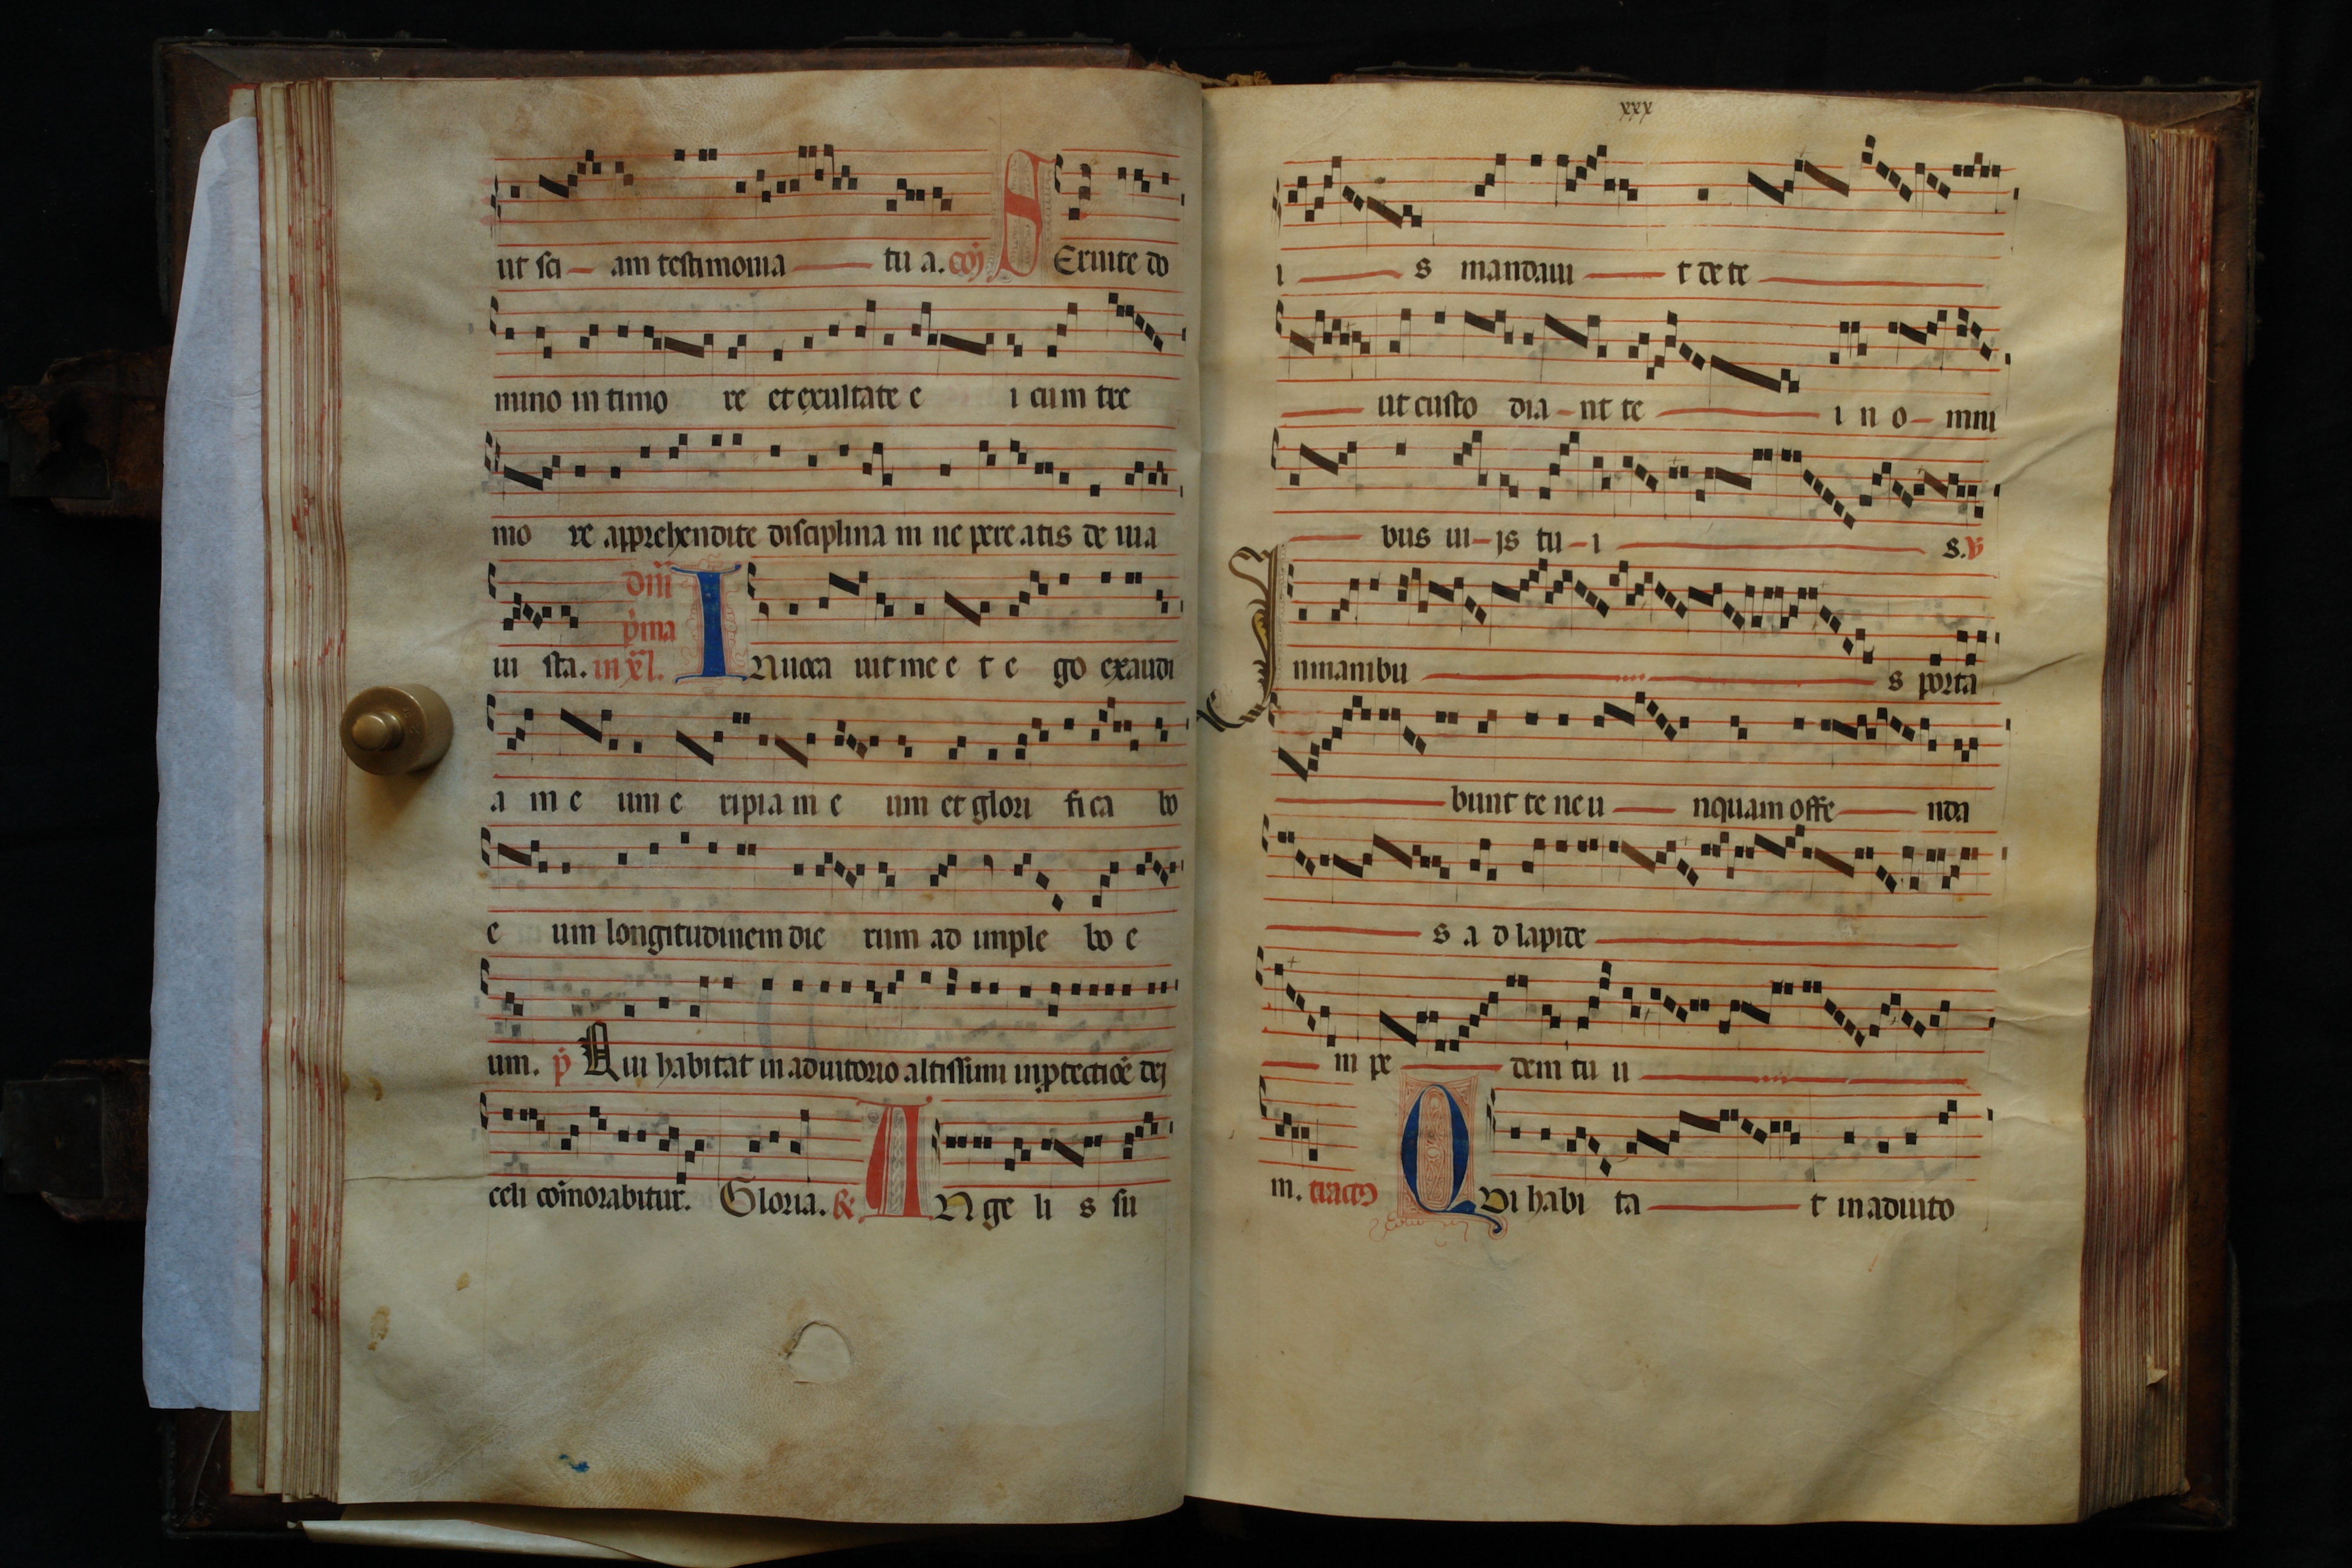 ut sci am testimonia tu a. coӣ SEruite do
mino in timo re et exultate e i cum tre
mo re apprehendite disciplina m ne pere atis de uia
dn̄i
p̄ma
iu sta. in xl. INuoca uit me e t e go exaudi
a m e um e ripia m e um et glori fi ca bo
e um longitudinem die rum ad imple bo e
um. p̄ Qui habitat in adiutorio altissimi in ꝓtectiōē dej
celi com̄orabitur. Gloria. ℟ ANge li s su
xxx
i s mandaui t de te
ut custo dia nt te i n o mni
bus ui js tu i s. ℣
Inmanibu s porta
bunt te ne u nquam offe nda
s a d lapide
m pe dem tu u
m. tractꝯ QVi habi ta t in adiuto